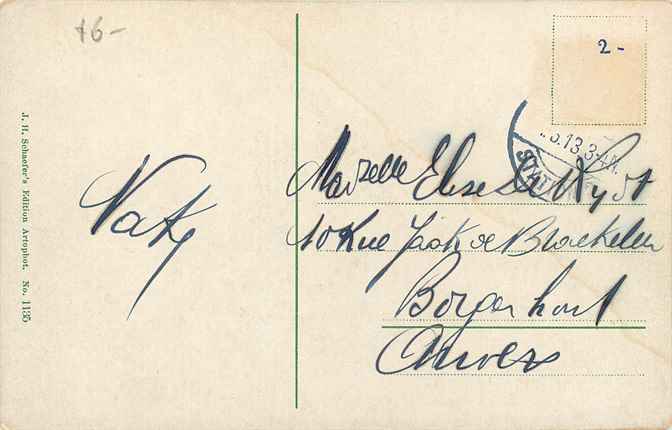 +6-
2-
J. H. Schaefer's Edition Artophot. No. 1135
3.13.3-4
Mazelle Elise De Wyst
10 Rue Jack de Braekeleer
Borgerhout
Anvers